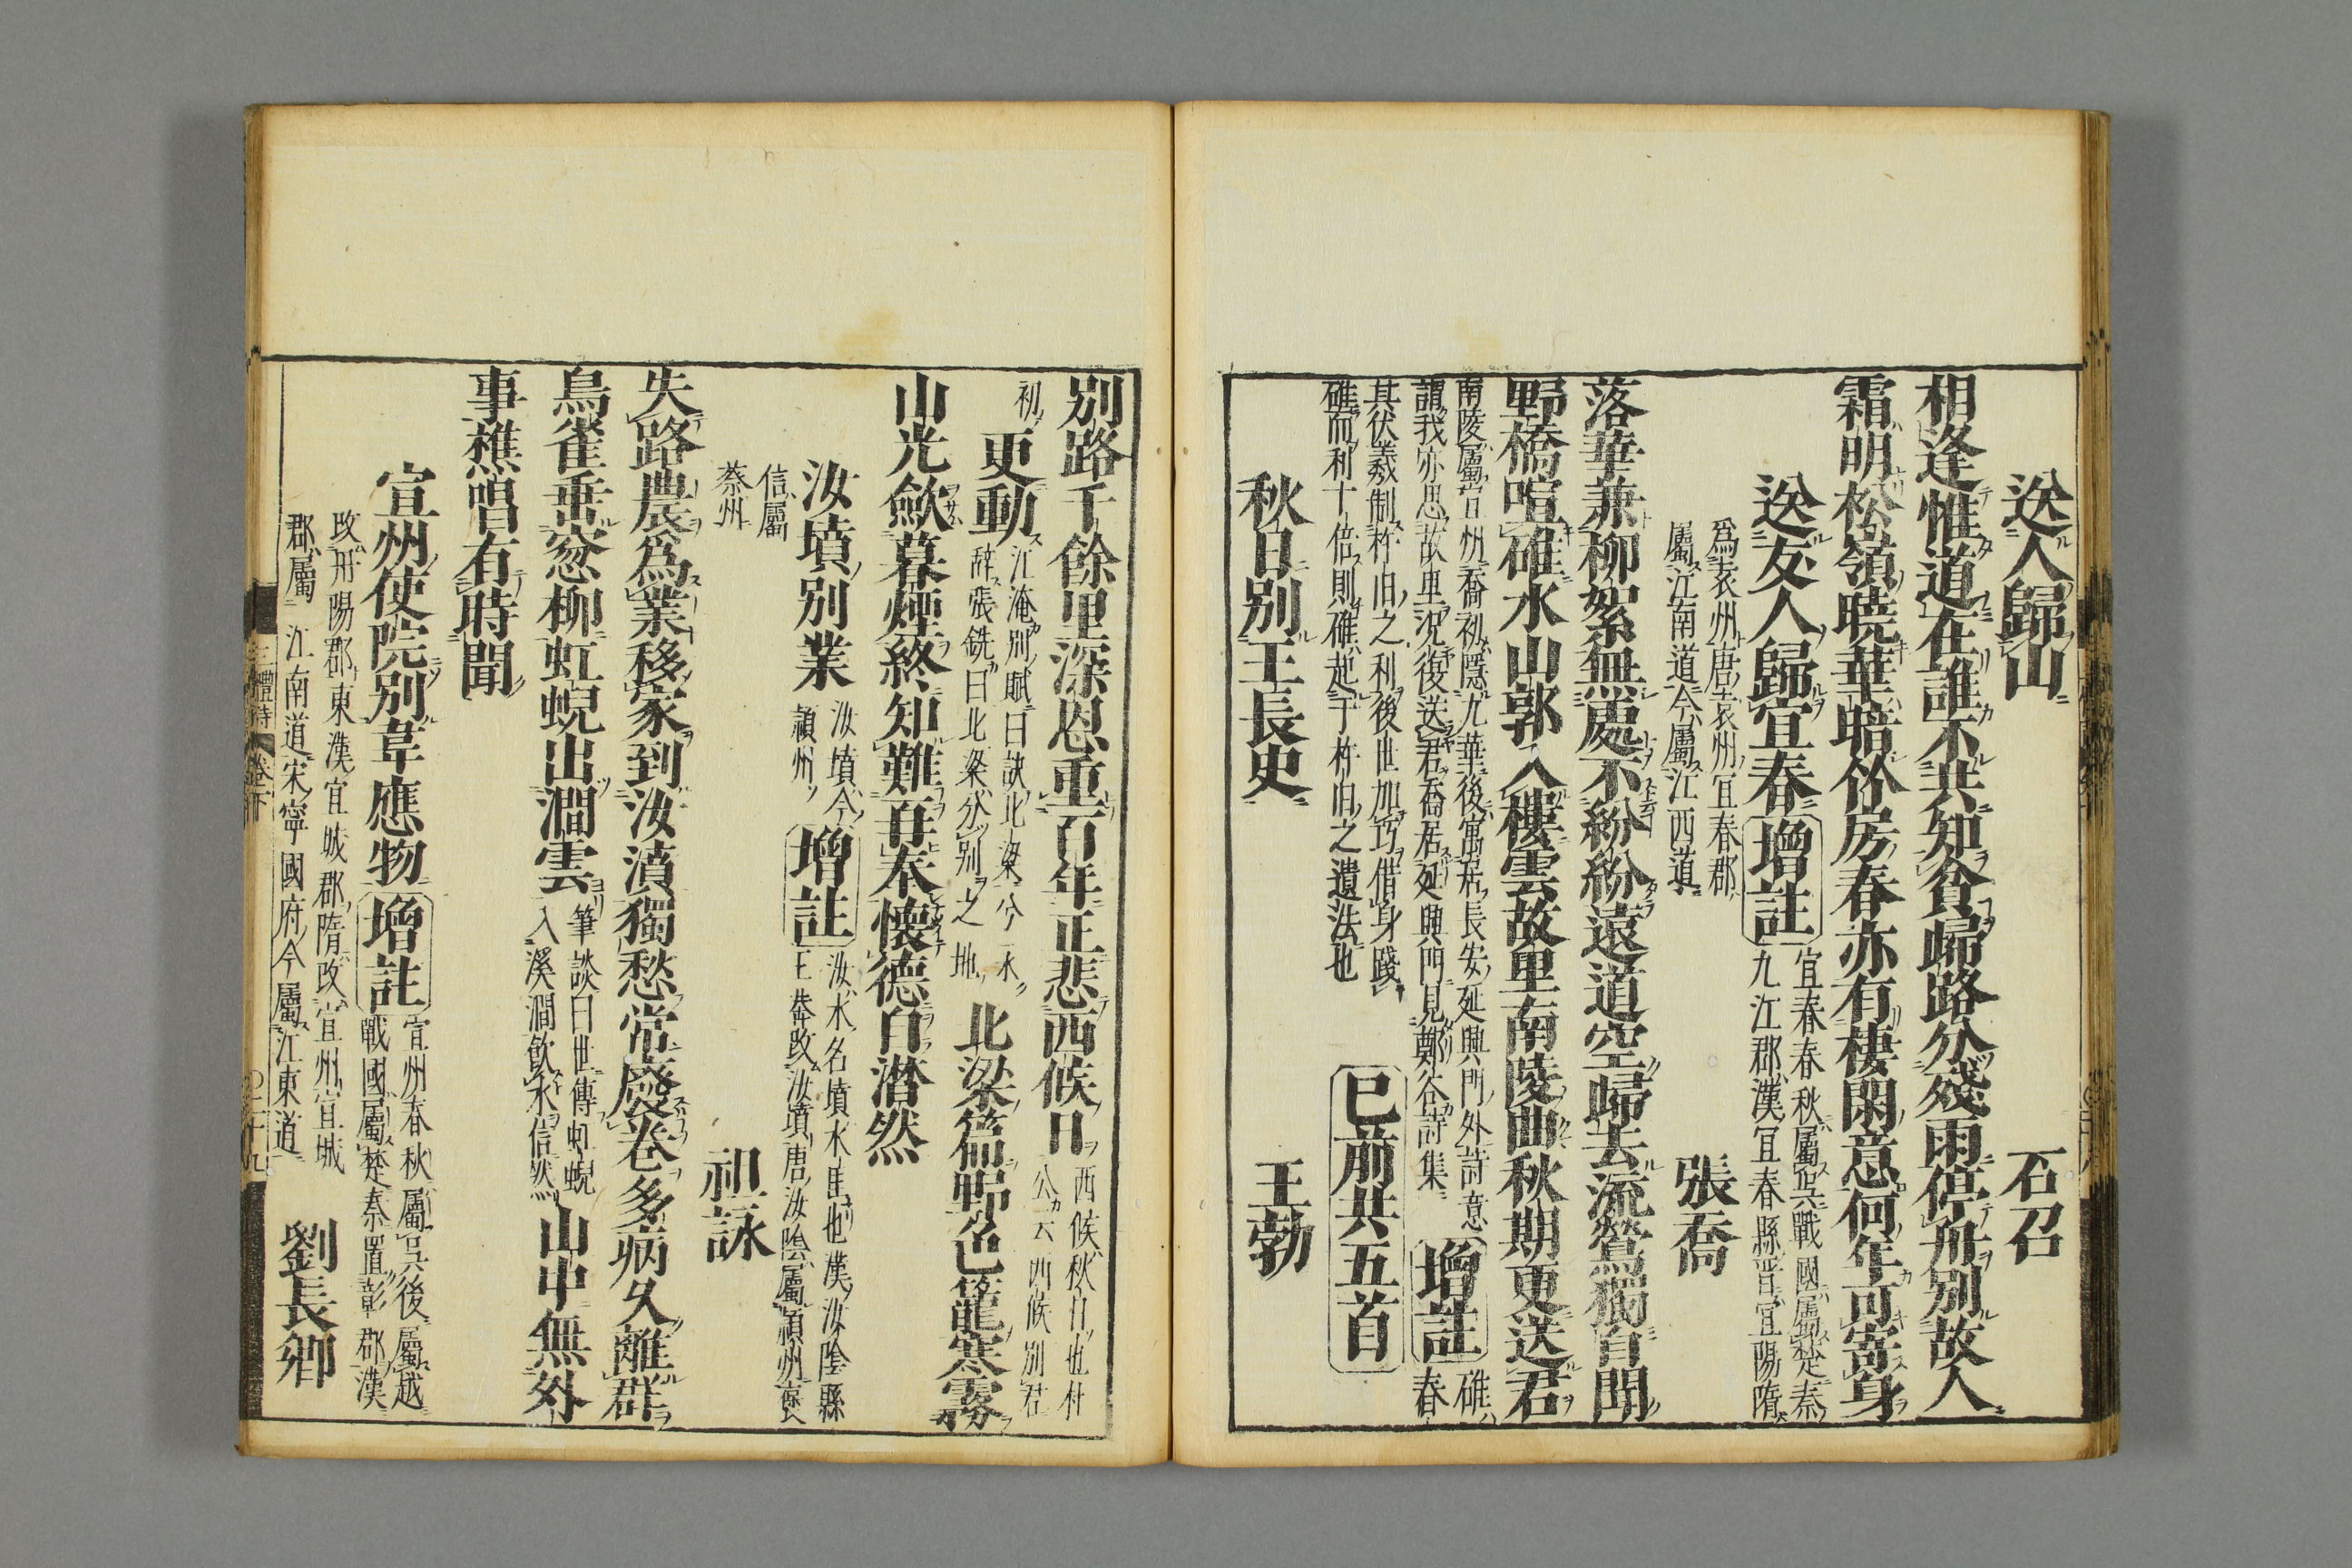 送人歸山 石召
相逢惟道在誰不共知貧歸路分殘雨停舟別故人
霜明松嶺曉華暗竹房春亦有棲閑意何年可寄身
送友人歸宜春 增註 宜春春秋屬吳戰國屬楚秦
九江郡漢宜春縣晋宜陽隋
爲袁州唐袁州宜春郡
屬江南道今屬江西道
張喬
落華兼柳絮無處不紛紛遠道空歸去流鶯獨自聞
野橋喧碓水山郭入樓雲故里南陵曲秋期更送君
南陵屬宣州喬初隱九華後寓居長安延興門外詩意
謂我亦思故里況復送君喬居延興門見鄭谷詩集
增註 碓春
其伏羲制杵臼之利後世加巧借身踐
碓而利十倍則碓起于杵臼之遺法也
已前共五首
秋日別王長史 王勃
別路千餘里深恩重百年正悲西候日 西候秋日也杜
公云西候別君
初 更動 江淹別賦曰訣北梁兮永
辞張銑曰北梁分別之地
北梁篇野色籠寒霧
山光歛暮煙終知難再奉懷德自潜然
汝墳別業 汝墳今
頴州
增註 汝水名墳水崖也漢汝陰縣
王莽改汝墳唐汝陰屬頴州
信屬
蔡州
祖詠
失路農爲業移家到汝濆獨愁常廢卷多病久離群
鳥雀垂窓柳虹蜺出澗雲 筆談曰世傳虹蜺
入溪澗飲水信然
山中無外
事樵唱有時聞
宣州使院別韋應物 增註 宣州春秋屬吳後屬越
戰國屬楚秦置彰郡漢
改丹陽郡東漢宣城郡隋改宣州宣城
郡屬江南道宋寧國府今屬江東道
劉長卿
三體詩 卷下 二十九